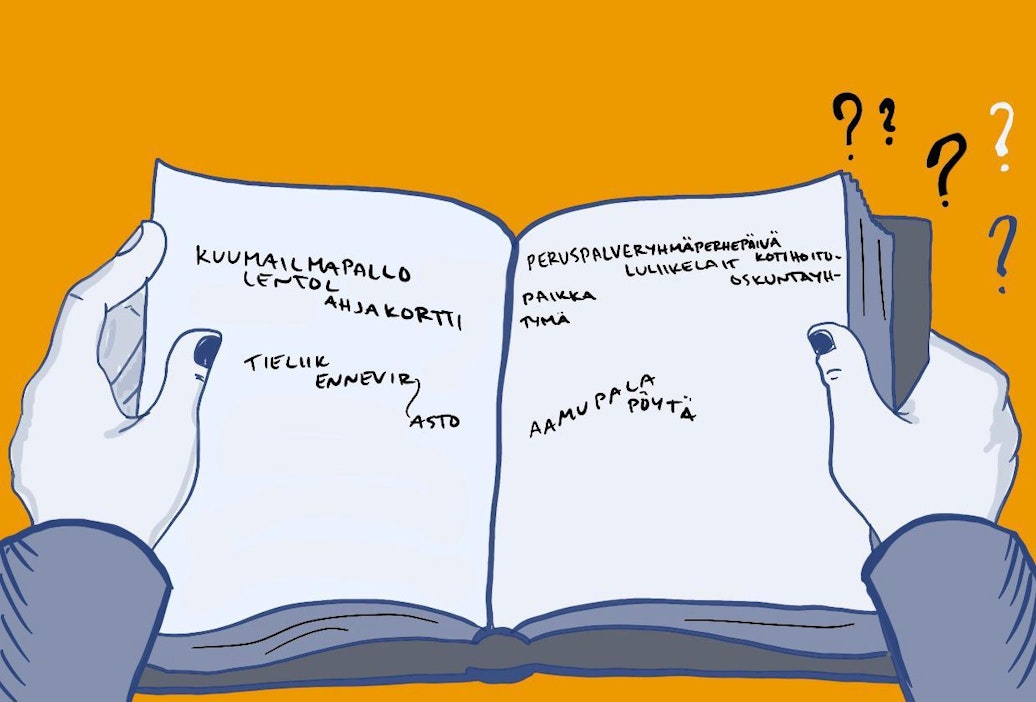 KUUMAILMAPALLO
LENTOL
AHJAKORTTI
TIELIIK
ENNEVIR
ASTO
PERUSPALVERYHMÄPERHEPÄIVÄ
LULIIKELAIT KOTIHOITU-
OSKUNTAYH-
PAIKKA
TYMÄ
AAMUPALA
PÖYTÄ
? ? ? ? ?